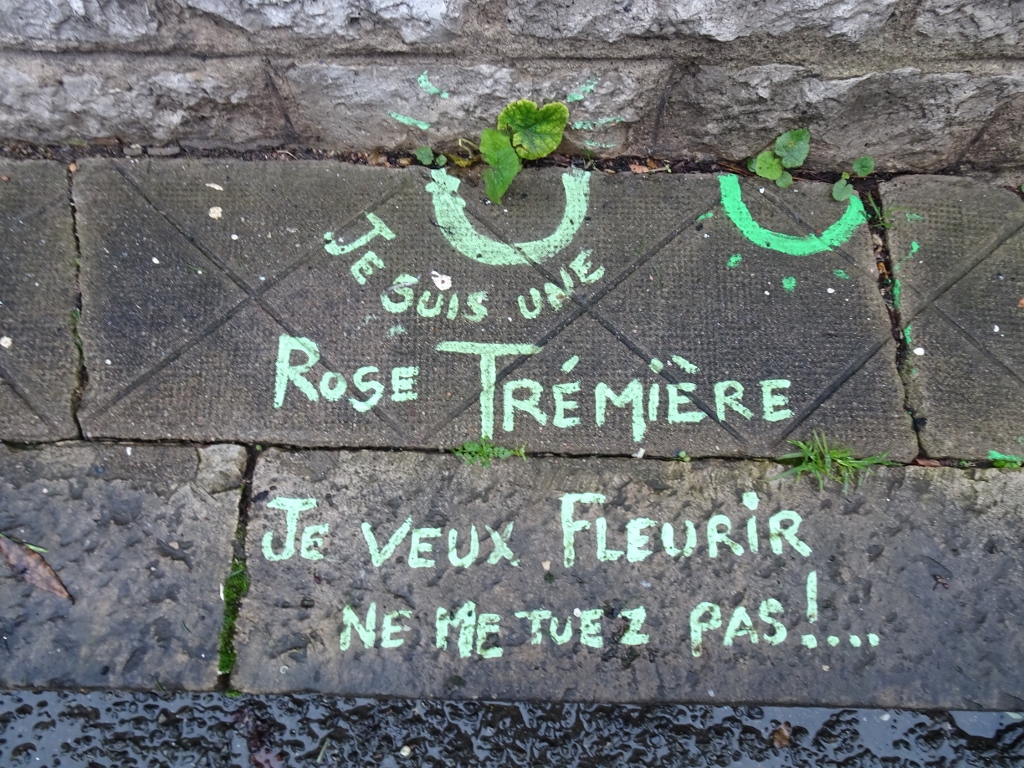 Je suis une
Rose Trémière
Je veux Fleurir
ne me tuez pas !....